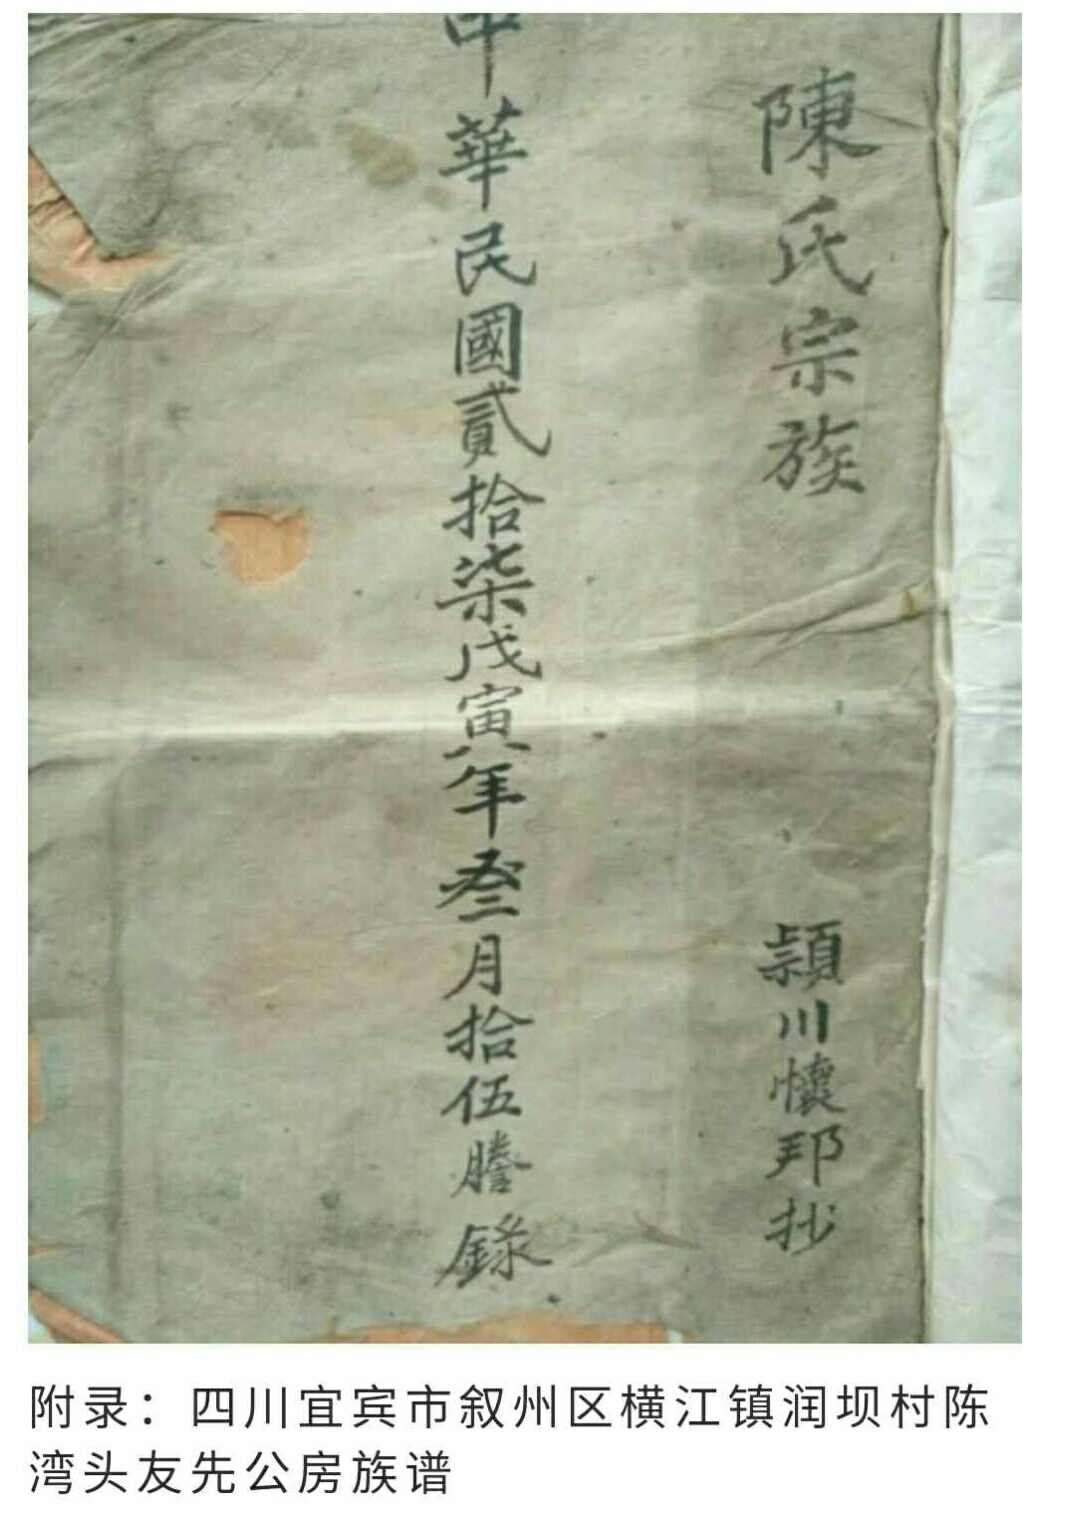 陳氏宗族
穎川懷邦抄
中華民國貳拾柒戊寅年叁月拾伍謄錄
附录：四川宜宾市叙州区横江镇润坝村陈
湾头友先公房族谱